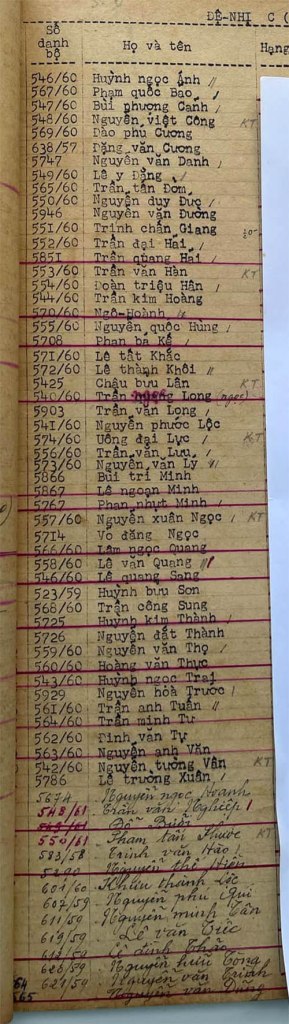 ĐỆ-NHỊ C (
Số danh bộ Họ và tên Hạng
546/60 Huỳnh ngọc Ánh
567/60 Phạm quốc Bao
547/60 Bùi phượng Canh
548/60 Nguyễn việt Công KT
569/60 Đào phú Cương
638/57 Đặng văn Cương
5747 Nguyễn văn Danh
549/60 Lê y Đặng
565/60 Trần tấn Đởm
550/60 Nguyễn duy Đức
5946 Nguyễn văn Đường
551/60 Trịnh chấn Giang
552/60 Trần đại Hải
5851 Trần quang Hải
553/60 Trần văn Hàn KT
554/60 Đoàn triệu Hân
544/60 Trần kim Hoàng
570/60 Ngô-Hoành
555/60 Nguyễn quốc Hùng
5708 Phan bá Kế
571/60 Lê tất Khắc
572/60 Lê thành Khôi
5425 Châu bưu Lân KT
540/60 Trần Long (ngọc)
5903 Trần văn Long
541/60 Nguyễn phước Lộc
574/60 Uông đại Lực KT
556/60 Trần văn Lưu
573/60 Nguyễn văn Lý
5866 Bùi trí Minh
5867 Lê ngoạn Minh
5767 Phan nhựt Minh
557/60 Nguyễn xuân Ngọc KT
5714 Võ đăng Ngọc
566/60 Lâm ngọc Quang
558/60 Lê văn Quang
546/60 Lê quang Sang
523/59 Huỳnh bưu Sơn
568/60 Trần công Sung
5725 Huỳnh kim Thành
5726 Nguyễn đặt Thành
559/60 Nguyễn văn Thọ
560/60 Hoàng văn Thực
543/60 Huỳnh ngọc Trai
5929 Nguyễn hoà Trước
561/60 Trần anh Tuấn
564/60 Trần minh Tư
562/60 Đinh văn Tự
563/60 Nguyễn anh Văn
542/60 Nguyễn tường Vân KT
5786 Lê trường Xuân
5674 Nguyễn ngọc Hoành
548/61 Trần văn Nghiệp
Đỗ
550/61 Phạm tấn Phước KT
583/58 Trịnh văn Hảo
Nguyễn thế Hiển
601/60 Khưu thành Lộc
607/59 Nguyễn phú Quí
611/59 Nguyễn minh Tân
619/59 Lê văn
612/59 Lê đình
626/59 Nguyễn hữu Tòng
621/59 Nguyễn văn Trinh
Nguyễn văn Dũng